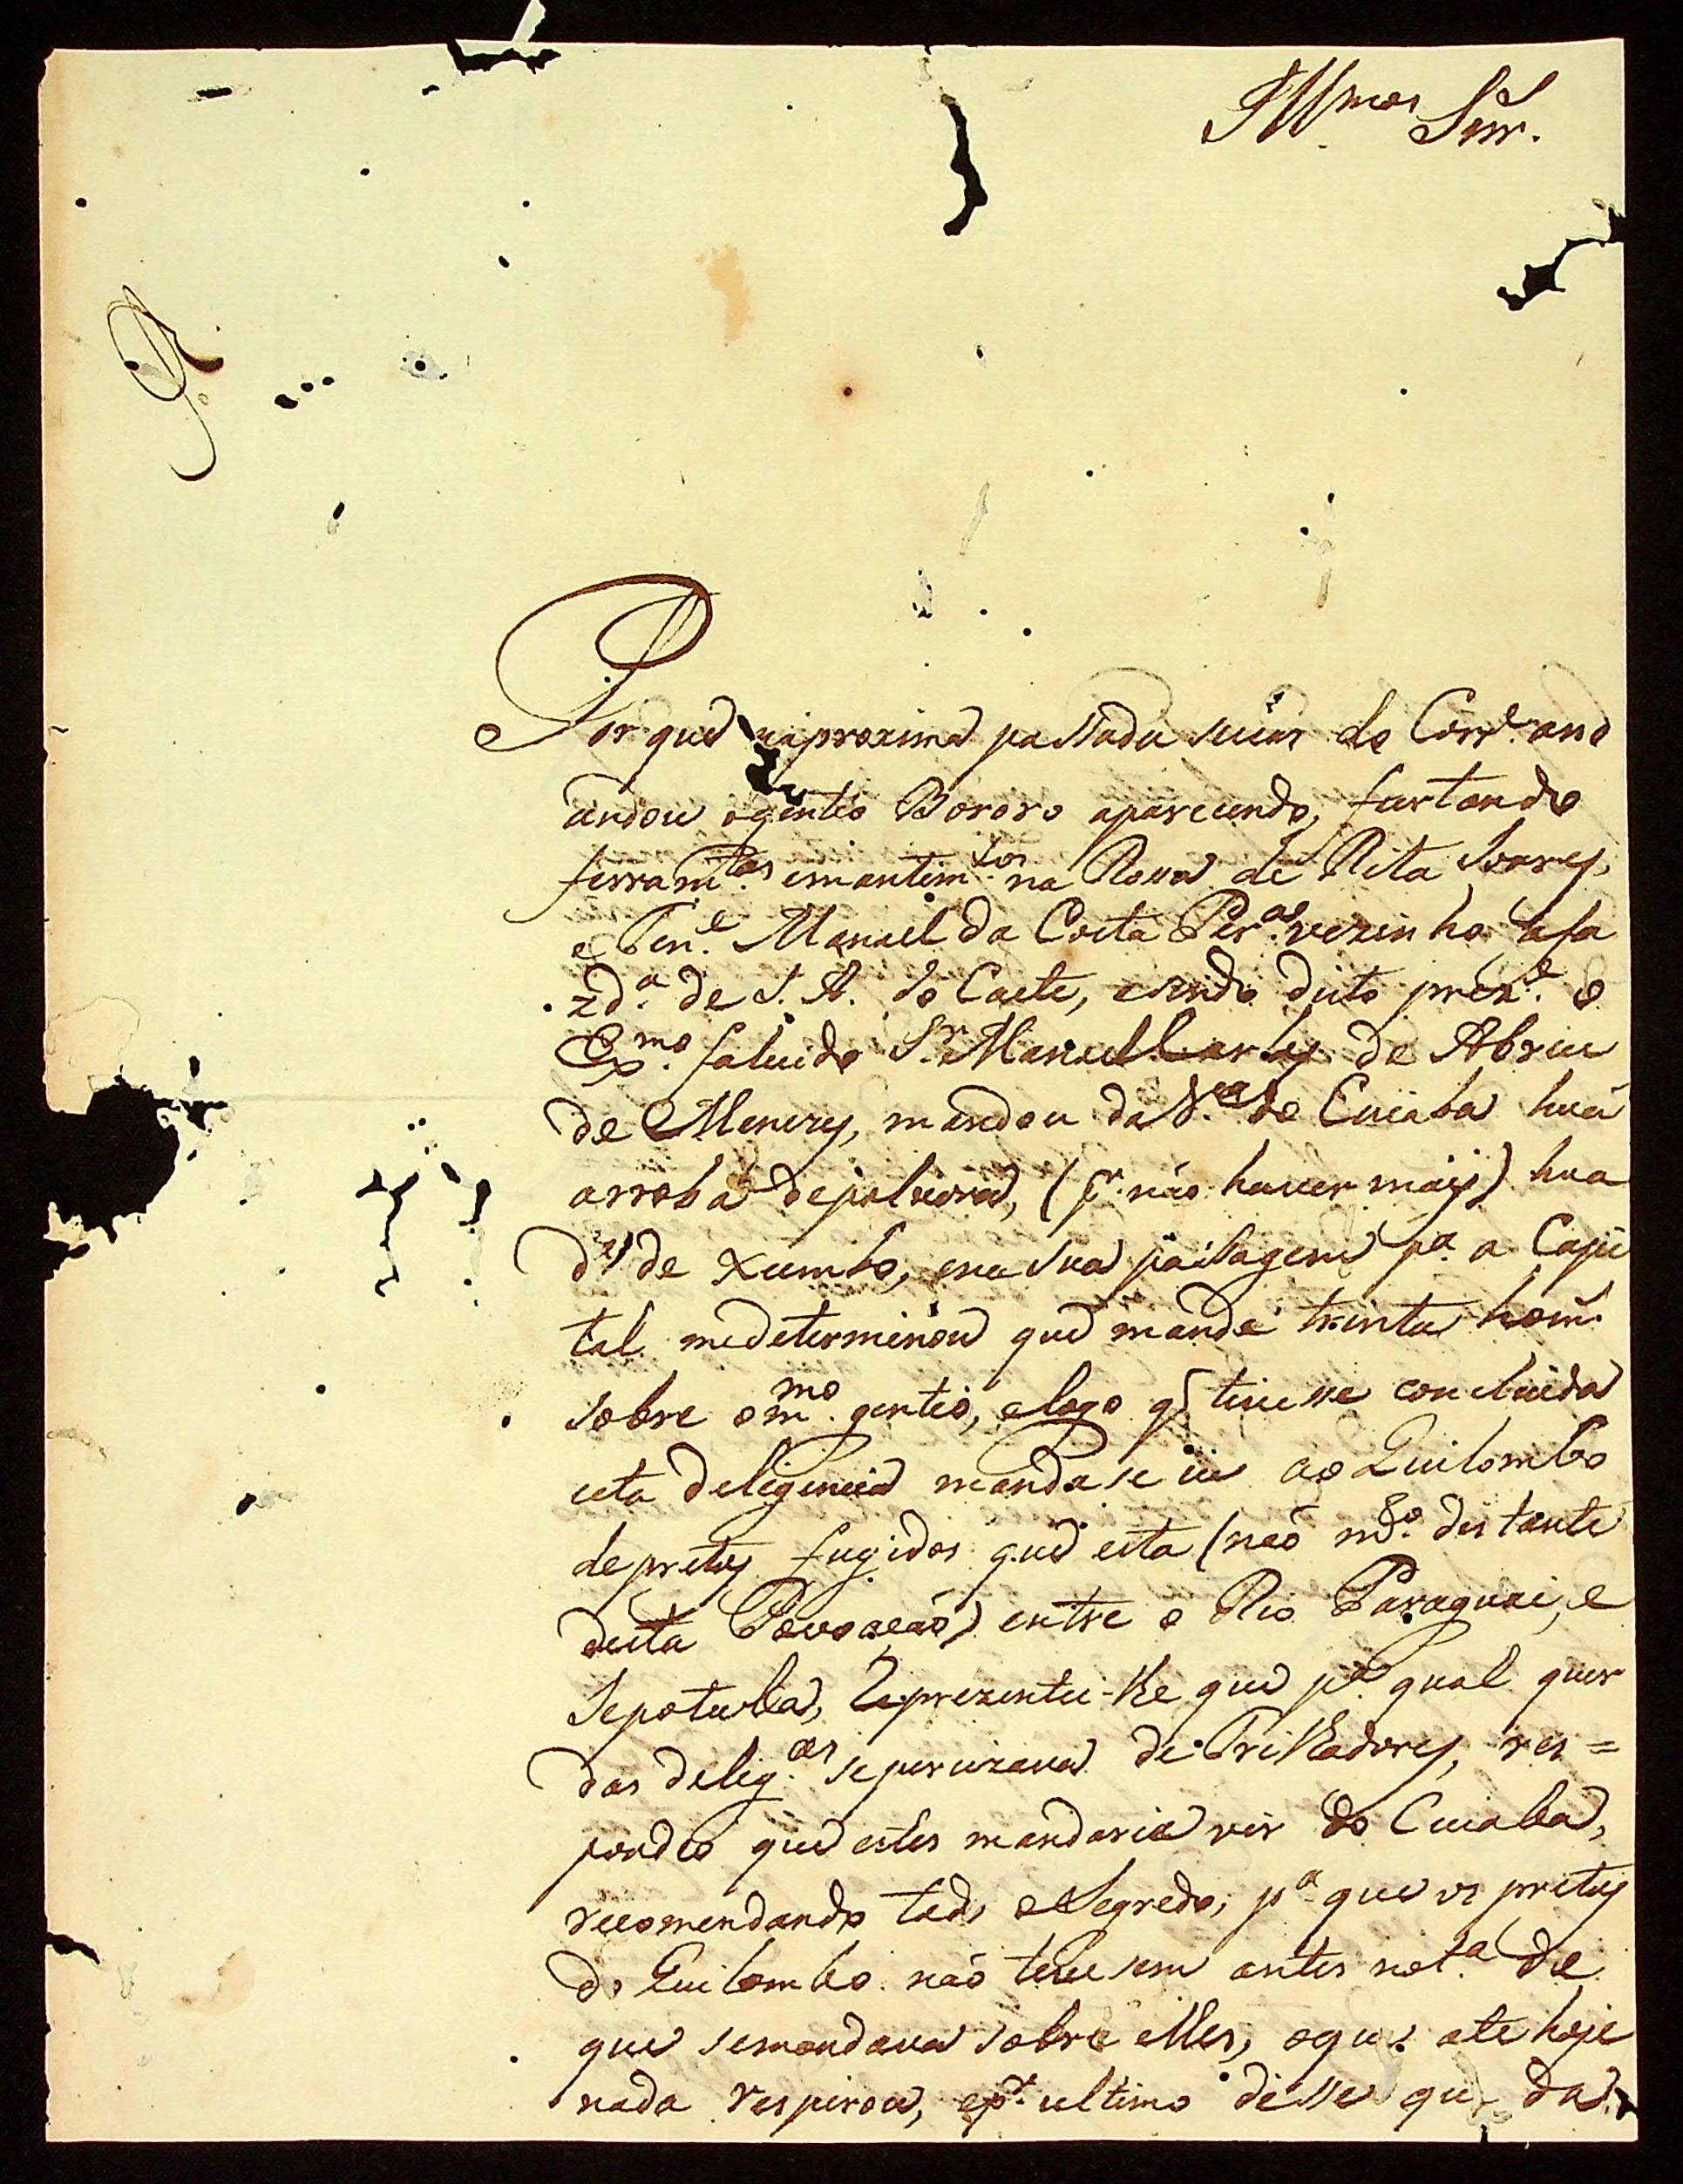 Ill.mos Snr.
Por que na proxima passada seccas do Corr.e ano
andou o gentio Bororo aparecendo, furtando
ferram.tas e mantim.tos na Rossa de Rita Soares,
e Ten.e Manuel da Costa Per.a vezinho a fa
zd.a de J. A. do Caete, e sendo disto prez.e o
Ex.mo falecido S.r Manuel Carlos de Abreu
de Menezes, mandou da V.a do Cuiaba huã
arroba de polvora, (p.r não haver mais) hua
d.a de xumbo, e na sua passagem p.a a Capi
tal me determinou que mande trinta hom.
sobre o m.mo gentio, e logo q' tivesse concluida
esta deligencia mandase ir ao Quilombo
de pretos fugidos que esta (não m.to distante
desta Povoação) entre o Rio Paraguai, e
Sepotuba, Reprezentei-lhe que p.a qual quer
das delig.as se percizava de Trilhadores, res=
pondeo que estes mandaria vir do Cuiaba,
recomendando todo o Segredo, p.a que os pretos
do Quilombo não tivessem antes not.a de
que se mandava sobre elles, o que ate hoje
nada respirou, e p.r ultimo disse que da